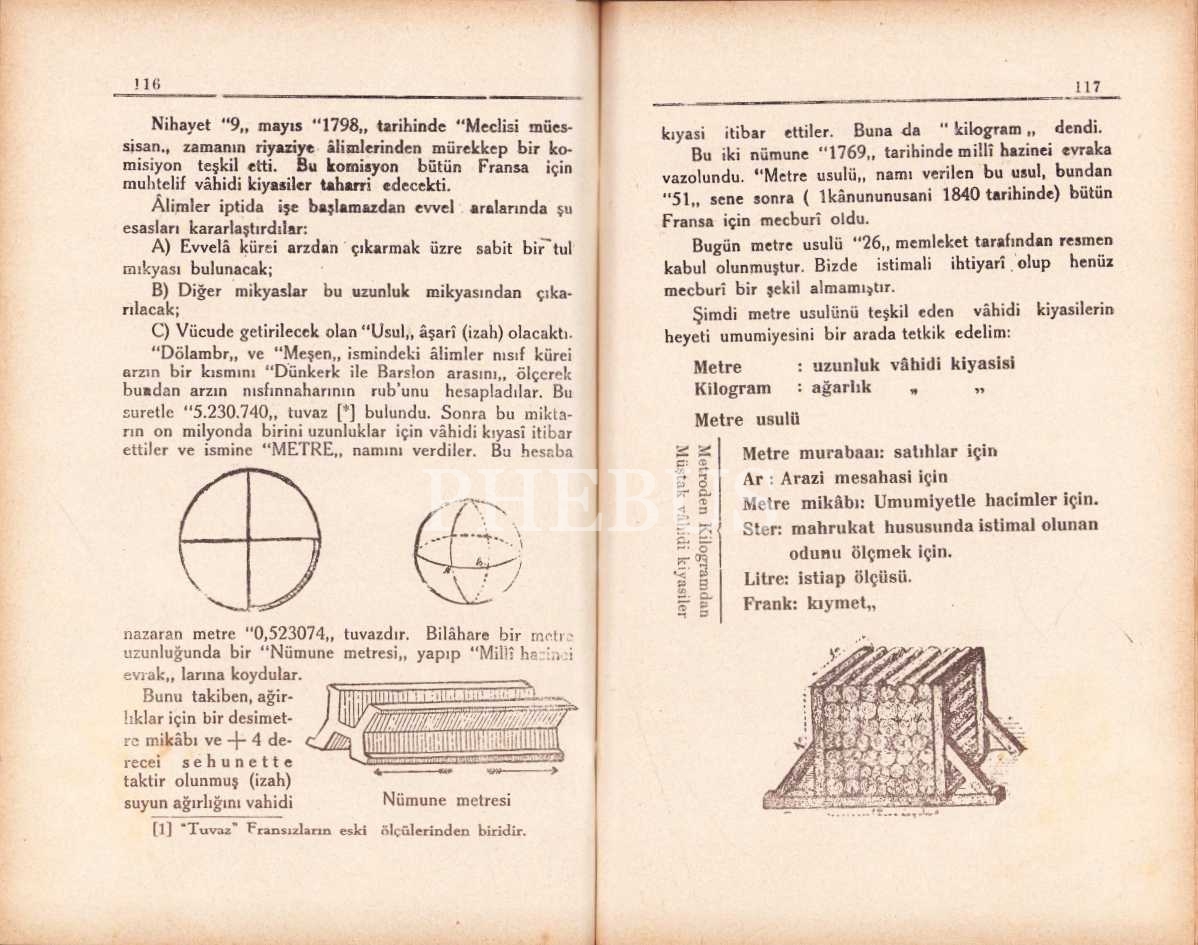 116
Nihayet “9„ mayıs “1798„ tarihinde “Meclisi mües-
sisan„ zamanın riyaziye âlimlerinden mürekkep bir ko-
misiyon teşkil etti. Bu komisyon bütün Fransa için
muhtelif vâhidi kiyasiler taharri edecekti.
Âlimler iptida işe başlamazdan evvel aralarında şu
esasları kararlaştırdılar:
A) Evvelâ kürei arzdan çıkarmak üzre sabit bir tul
mıkyası bulunacak;
B) Diğer mikyaslar bu uzunluk mikyasından çıka-
rılacak;
C) Vücude getirilecek olan “Usul„ âşarî (izah) olacaktı.
“Dölambr„ ve “Meşen„ ismindeki âlimler nısıf kürei
arzın bir kısmını “Dünkerk ile Barslon arasını„ ölçerek
bundan arzın nısfınnaharının rub'unu hesapladılar. Bu
suretle “5.230.740„ tuvaz [*] bulundu. Sonra bu mikta-
rın on milyonda birini uzunluklar için vâhidi kıyasî itibar
ettiler ve ismine “METRE„ namını verdiler. Bu hesaba
A B
nazaran metre “0,523074„ tuvazdır. Bilâhare bir metre
uzunluğunda bir “Nümune metresi„ yapıp “Millî hazinei
evrak„ larına koydular.
Bunu takiben, ağır-
lıklar için bir desimet-
re mikâbı ve + 4 de-
recei sehunette
taktir olunmuş (izah)
suyun ağırlığını vahidi
Nümune metresi
[1] “Tuvaz” Fransızların eski ölçülerinden biridir.
117
kıyasi itibar ettiler. Buna da “kilogram„ dendi.
Bu iki nümune “1769„ tarihinde millî hazinei evraka
vazolundu. “Metre usulü„ namı verilen bu usul, bundan
“51„ sene sonra ( 1kânununusani 1840 tarihinde) bütün
Fransa için mecburî oldu.
Bugün metre usulü “26„ memleket tarafından resmen
kabul olunmuştur. Bizde istimali ihtiyarî olup henüz
mecburî bir şekil almamıştır.
Şimdi metre usulünü teşkil eden vâhidi kiyasilerin
heyeti umumiyesini bir arada tetkik edelim:
Metre : uzunluk vâhidi kiyasisi
Kilogram : ağarlık „ „
Metre usulü
Metroden Kilogramdan
Müştak vâhidi kiyasiler
Metre murabaaı: satıhlar için
Ar : Arazi mesahasi için
Metre mikâbı: Umumiyetle hacimler için.
Ster: mahrukat hususunda istimal olunan
odunu ölçmek için.
Litre: istiap ölçüsü.
Frank: kıymet„
PHEBUS